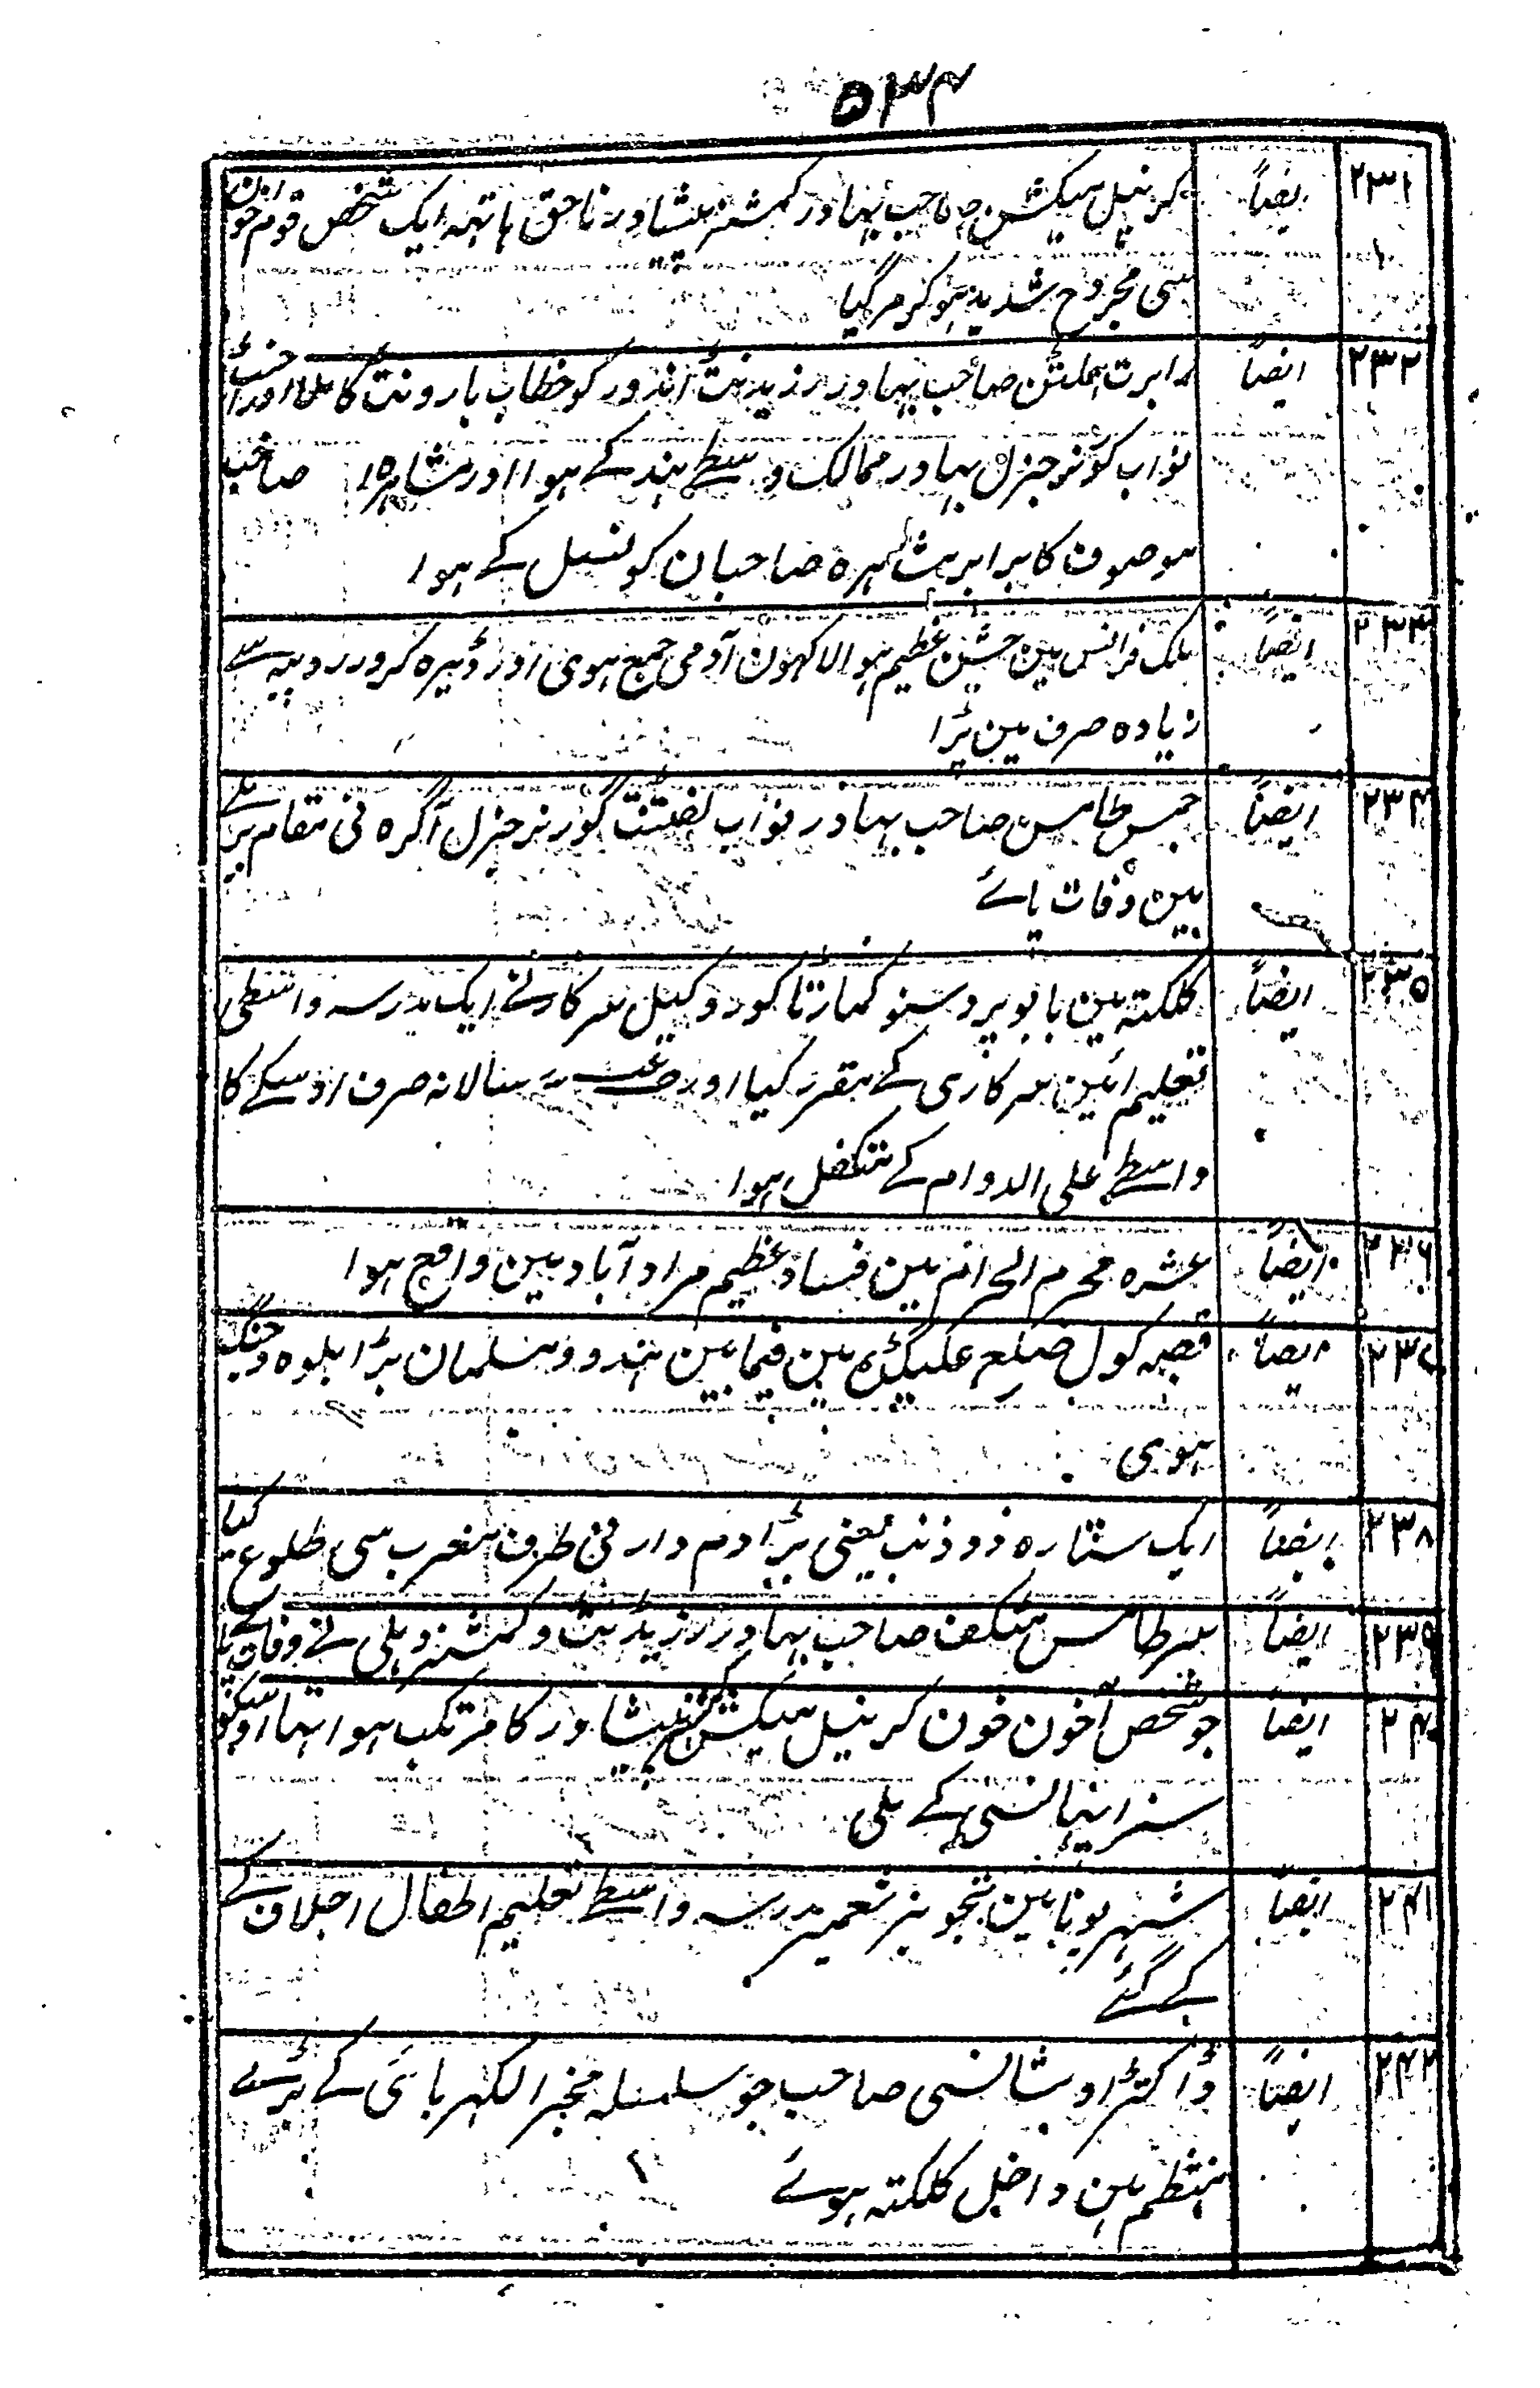 ۵۳۴
۲۳۱ ایضاً کرنیل میکیشن صاحب بہادر کمشنر پشاور ناحق ہاتہہ ایک شخص قوم
سی مجروح شدید ہو کر مر گیا
۲۳۲ ایضاً رابرت ہملٹن صاحب بہادر رزیڈنٹ اندور کو خطاب بارونت کا ملا اور
نواب گونر جنرل بہادر ممالک وسط ہند کے ہوا اور مشاہرہ صاحب
موصوف کا برابر مشاہرہ صاحبان کونسل کے ہوا
۲۳۳ ایضاً ملک فرانس مین جشن عظیم ہوا لاکہون آدمی جمع ہوی اور ڈیرہ کرور روپیہ سے
زیادہ صرف مین پڑا
۲۳۴ ایضاً جمس طامسن صاحب بہادر نواب لفٹنٹ گورنر جنرل آگرہ نی مقام بریلے
مین وفات پائے
۲۳۵ ایضاً کلکتہ مین بابو پروسنو کمار ٹاکور وکیل سرکار نے ایک مدرسہ واسطی
تعلیم ائین سرکاری کے مقرر کیا اور سالانہ صرف اوسکے کا
واسطے علی الدوام کے متکفل ہوا
۲۳۶ ایضاً عشرہ محرم الحرام مین فساد عظیم مراد آباد مین واقع ہوا
۲۳۷ ایضاً قصبہ کول ضلع علیگڑہ مین فیمابین ہندو و مسلمان بڑا بلوہ و جنگ
ہوی
۲۳۸ ایضاً ایک ستارہ ذو ذنب یعنی بڑا دم دار نی طرف مغرب سی طلوع کیا
۲۳۹ ایضاً سر طامس مٹکف صاحب بہادر رزیڈنٹ و کمشنر دہلی نے وفات پائے
۲۴۰ ایضاً جو شخص آخون خون کرنیل میکیشن کمشنر پشاور کا مرتکب ہوا تہا اوسکو
سزا پہانسی کے ملی
۲۴۱ ایضاً شہر پونا مین تجویز تعمیر مدرسہ واسطے تعلیم اطفال اجلاف کے
کے گئے
۲۴۲ ایضاً ڈاکٹر اوشانسی صاحب جو سلسلہ مخبر الکہربائی کے بڑے
منتظم ہین داخل کلکتہ ہوئے